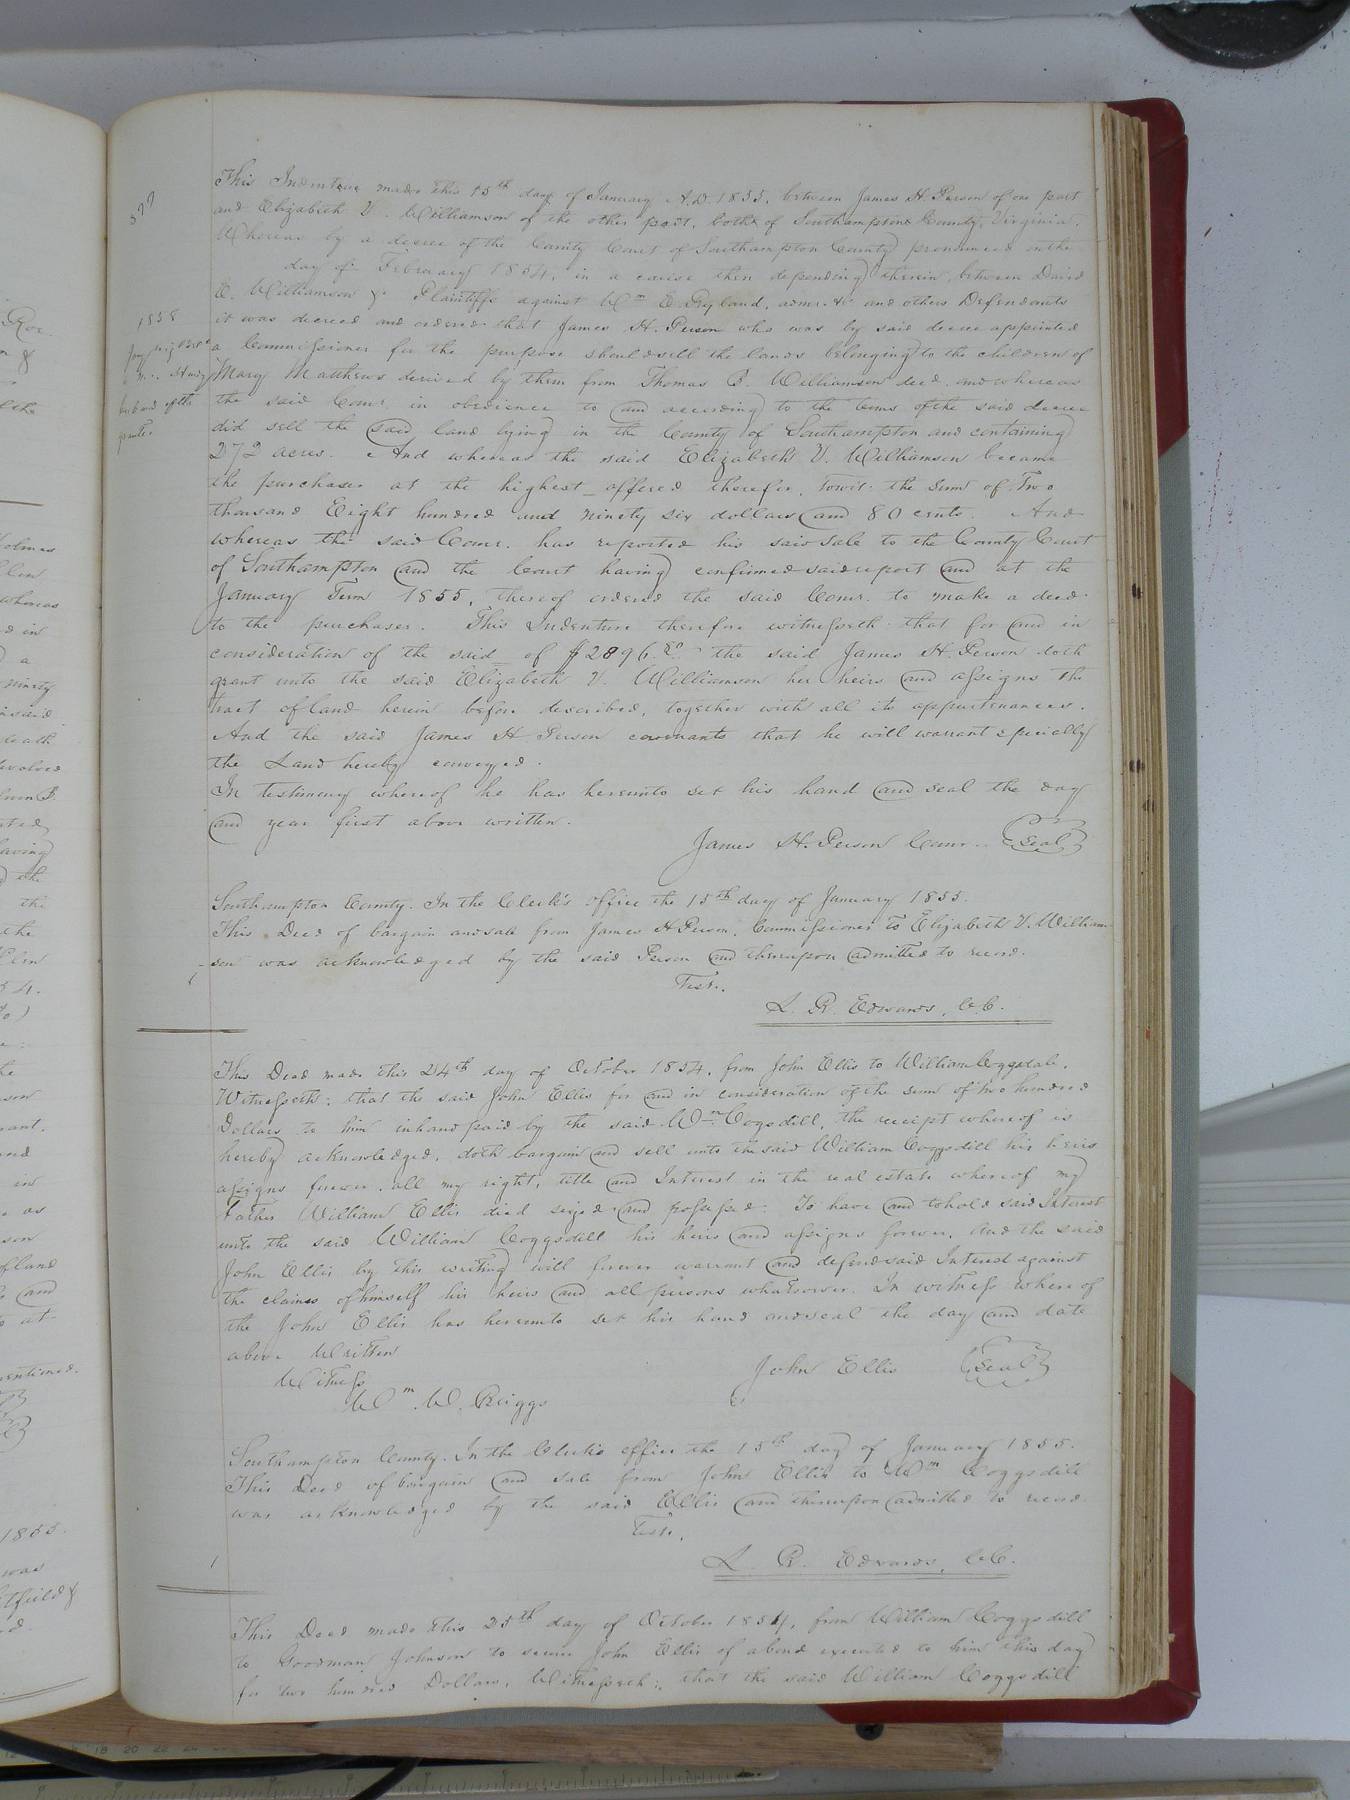 377
This Indenture made this 15th day of January A.D. 1855, between James H. Person of one part
and Elizabeth V. Williamson of the other part, both of Southampton County, Virginia.
Whereas by a decree of the County Court of Southampton County pronounced on the
day of February 1854, in a cause then depending therein, between David
E. Williamson &c Plaintiffs against Wm E. Ryland, admr. &c and others Defendants
it was decreed and ordered that James H. Person who was by said decree appointed
a Commissioner for the purpose should sell the lands belonging to the children of
Mary Matthews derived by them from Thomas B. Williamson decd. and whereas
the said Comr. in obedience to and according to the terms of the said decree
did sell the said land lying in the County of Southampton and containing
272 acres. And whereas the said Elizabeth V. Williamson became
the purchaser at the highest offered therefor, towit: the Sum of Two
thousand Eight hundred and ninety six dollars and 80 cents. And
whereas the said Comr. has reported his said sale to the County Court
of Southampton and the Court having confirmed said report and at the
January Term 1855, thereof ordered the said Comr. to make a deed
to the purchaser. This Indenture therefore witnesseth that for and in
consideration of the said of $2896.80 the said James H. Person doth
grant unto the said Elizabeth V. Williamson her heirs and assigns the
tract of land herein before described, together with all its appurtenances.
And the said James H Person covenants that he will warrant specially
the Land hereby conveyed.
In testimony whereof he has hereunto set his hand and seal the day
and year first above written.
James H. Person Comr. Seal
1858
husband of the
grantee
Southampton County. In the Clerk's office the 15th day of January 1855.
This Deed of bargain and sale from James H Person, Commissioner to Elizabeth V. William-
son was acknowledged by the said Person and thereupon admitted to record.
Test.
L. R. Edwards, C.C.
This Deed made this 24th day of October 1854, from John Ellis to William Coggsdale.
Witnesseth: that the said John Ellis for and in consideration of the sum of two hundred
Dollars to him inhand paid by the said Wm Cogsdill, the receipt whereof is
hereby acknowledged, doth bargain and sell unto the said William Coggsdill his heirs
assigns forever, all my right, title and Interest in the real estate whereof my
Father William Ellis died seized and possessed. To have and to hold said Interest
unto the said William Coggsdill his heirs and assigns forever. And the said
John Ellis by this writing will forever warrant and defend said Interest against
the claims of himself his heirs and all persons whatsoever. In witness whereof
the John Ellis has hereunto set his hand and seal the day and date
above Written
Witness
Wm. W. Briggs
John Ellis Seal
Southampton County. In the Clerk's office the 15th day of January 1855.
This Deed of bargain and sale from John Ellis to Wm Coggsdill
was acknowledged by the said Ellis and thereupon admitted to record.
Test.
L. R. Edwards, C.C.
This Deed made this 25th day of October 1854, from William Coggsdill
to Goodman Johnson to secure John Ellis of a bond executed to him this day
for two hundred Dollars, Witnesseth: that the said William Coggsdill